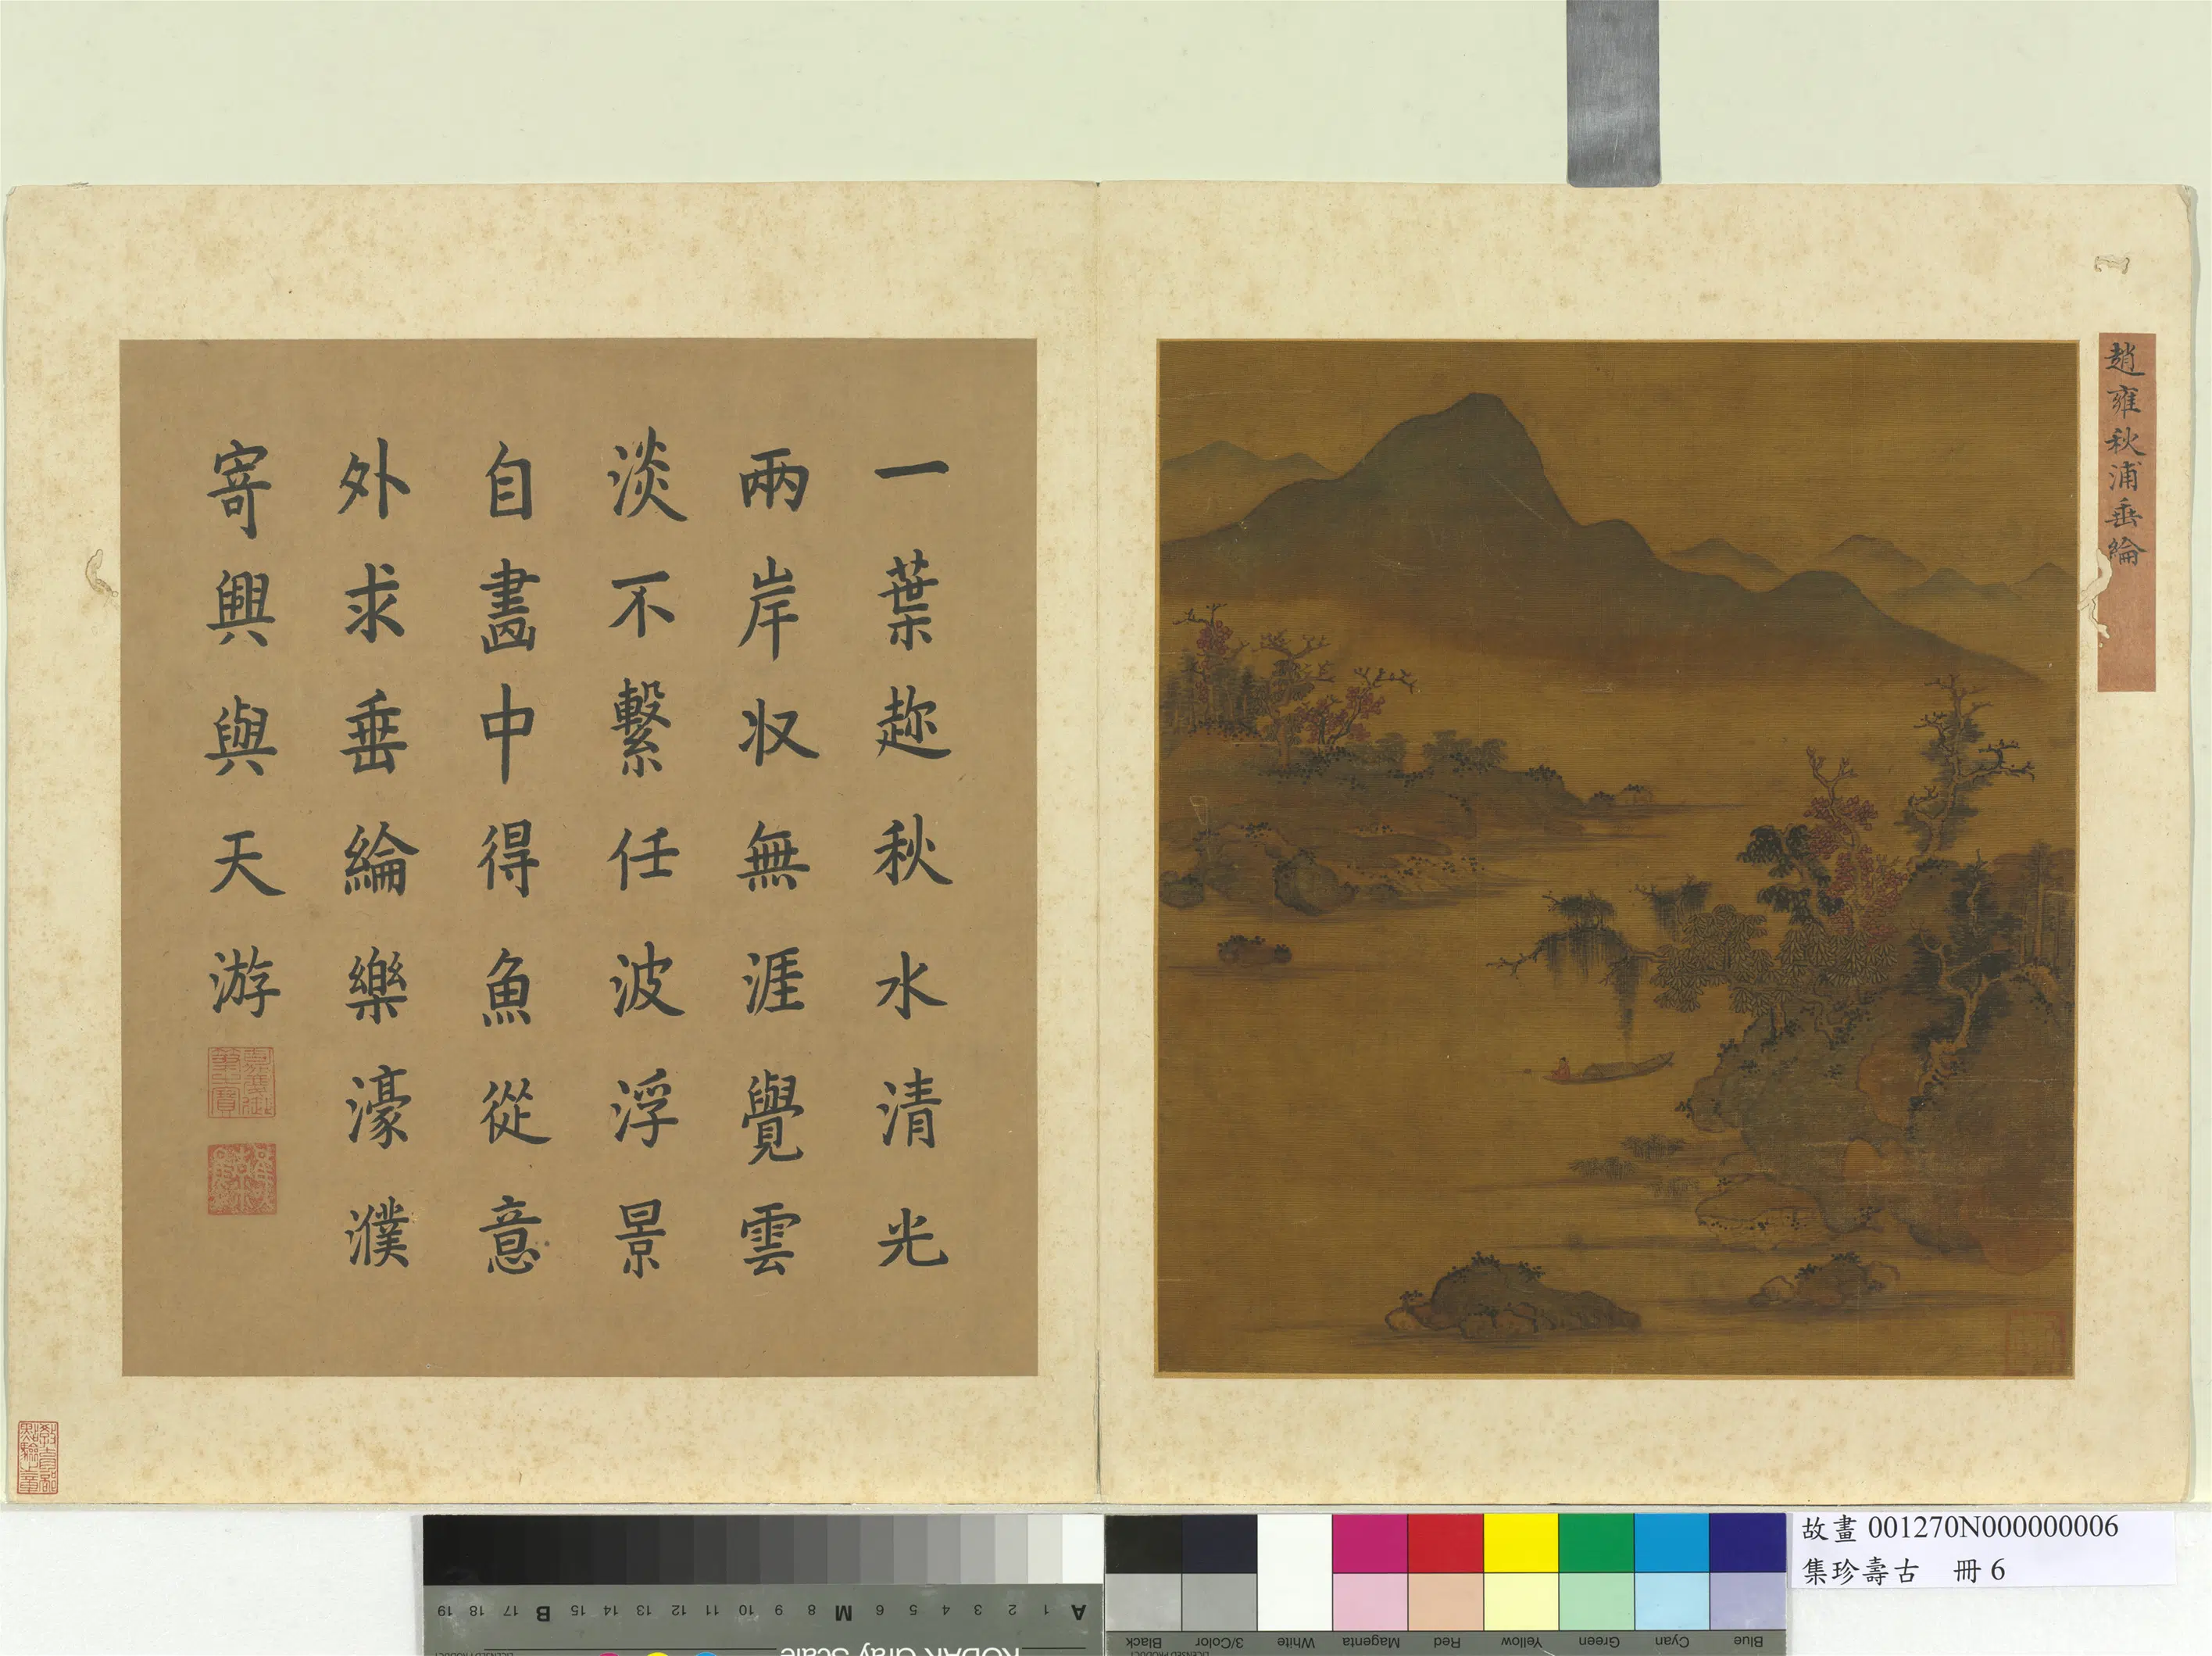 趙雍秋浦垂綸
一葉趂秋水清光
兩岸収無涯覺雲
淡不繫任波浮景
自畫中得魚從意
外求垂綸樂濠濮
寄興與天游
故畫 001270N000000006
集珍壽古 冊 6
KODAK Gray Scale
A 1 2 3 4 5 6 M 8 9 10 11 12 13 14 15 B 17 18 19
Blue Cyan Green Yellow Red Magenta White 3/Color Black